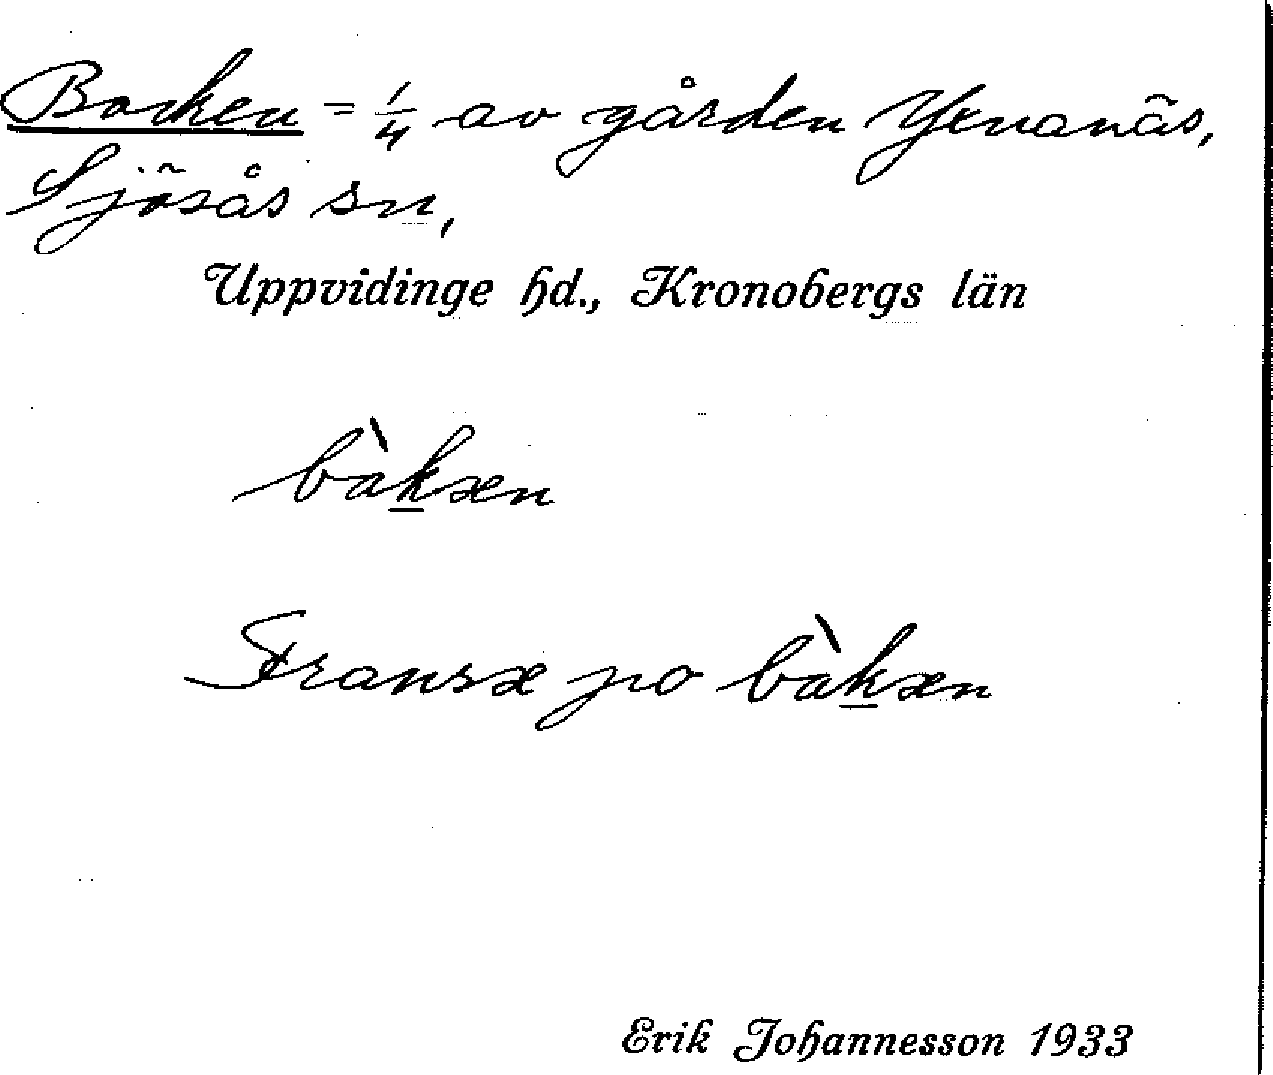 Backen = 1/4 av gården Yxnanäs,
Sjösås sn,
Uppvidinge hd., Kronobergs län
bàkæn
Fransæ po bàkæn
Erik Johannesson 1933